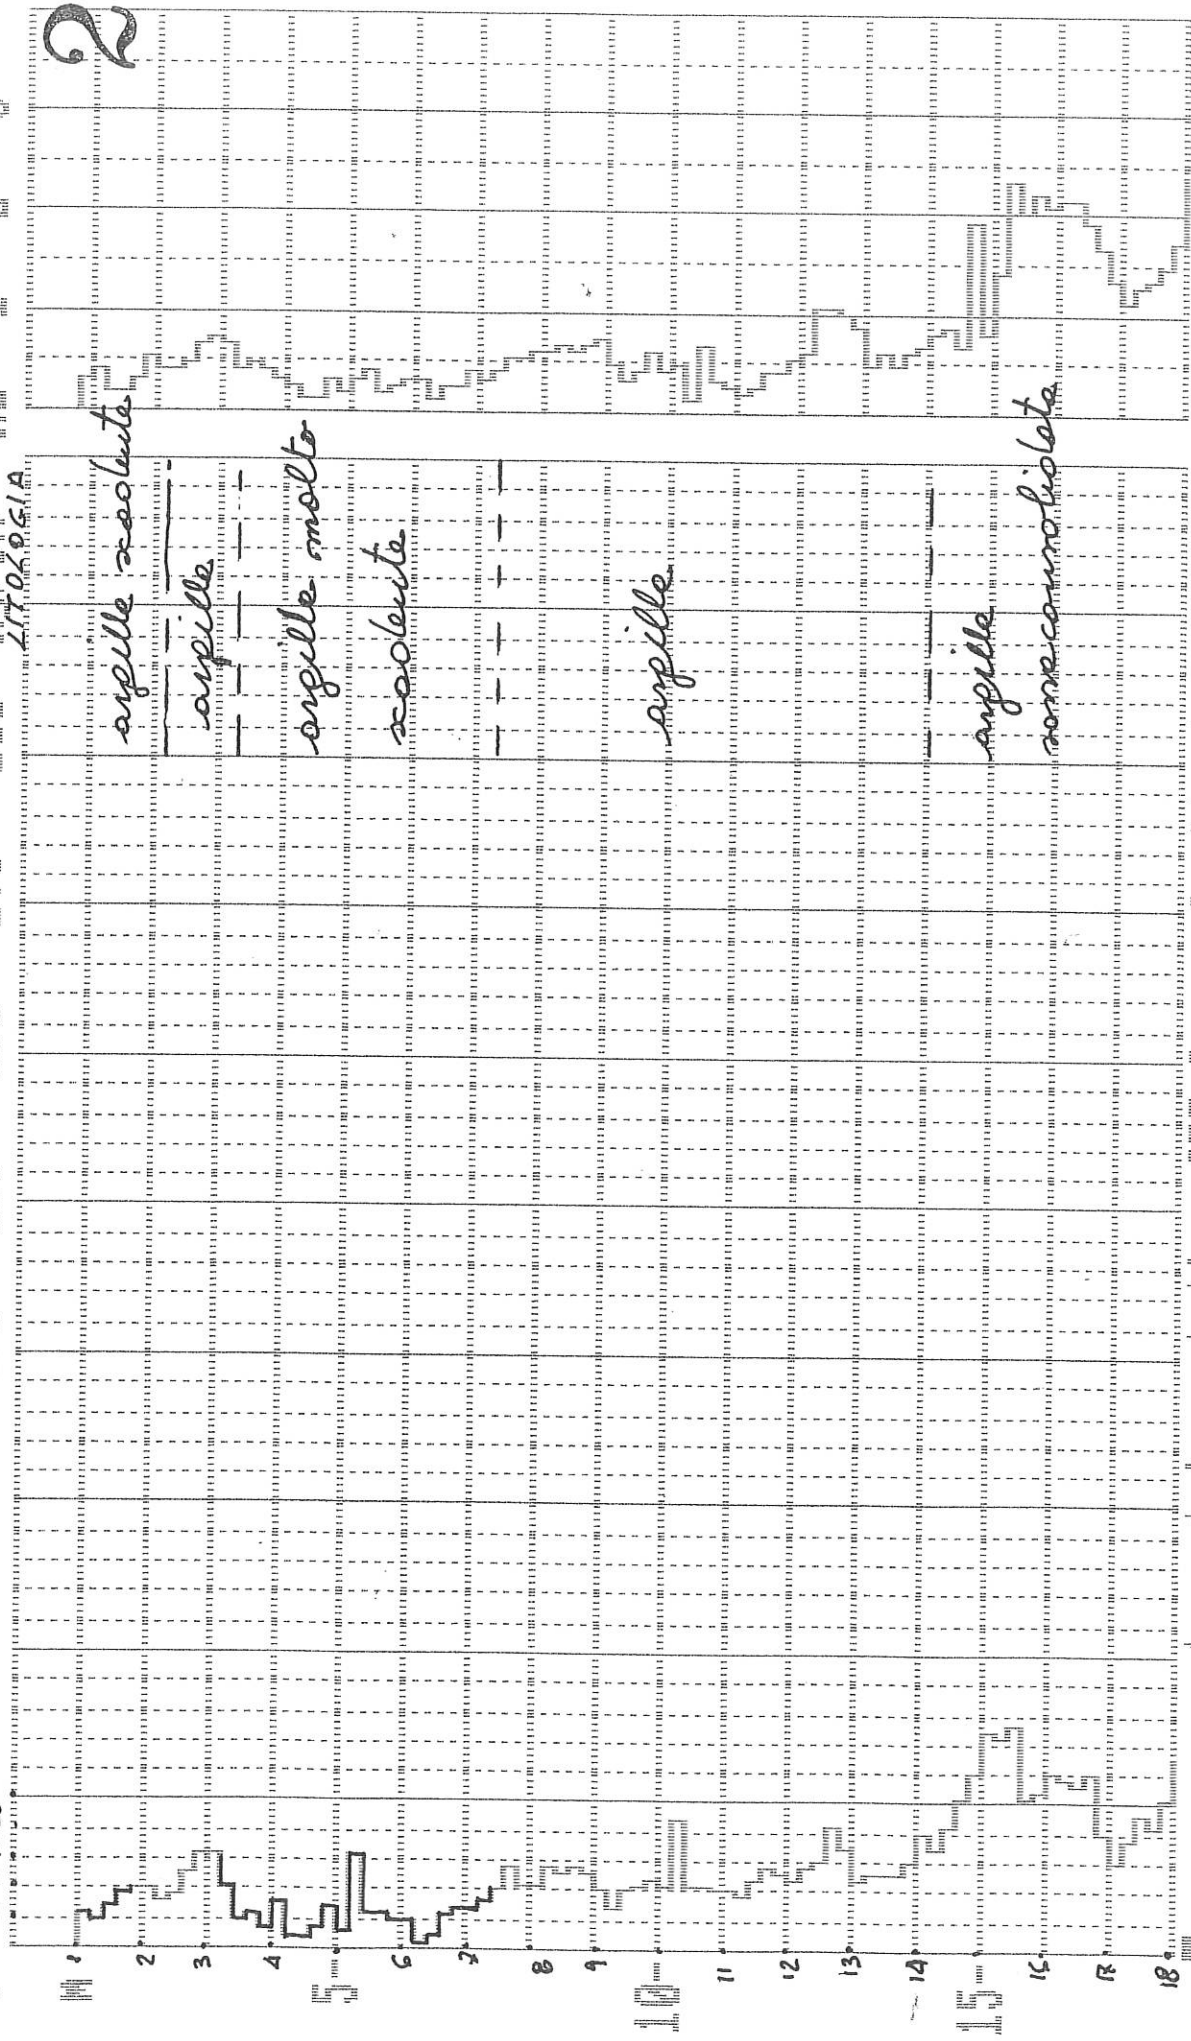 2
LITOLOGIA
argille scadente
argilla
argilla molto
scadente
argilla
argilla
sovraconsolidata
M
1
2
3
4
5
6
7
8
9
10
11
12
13
14
15
16
17
18